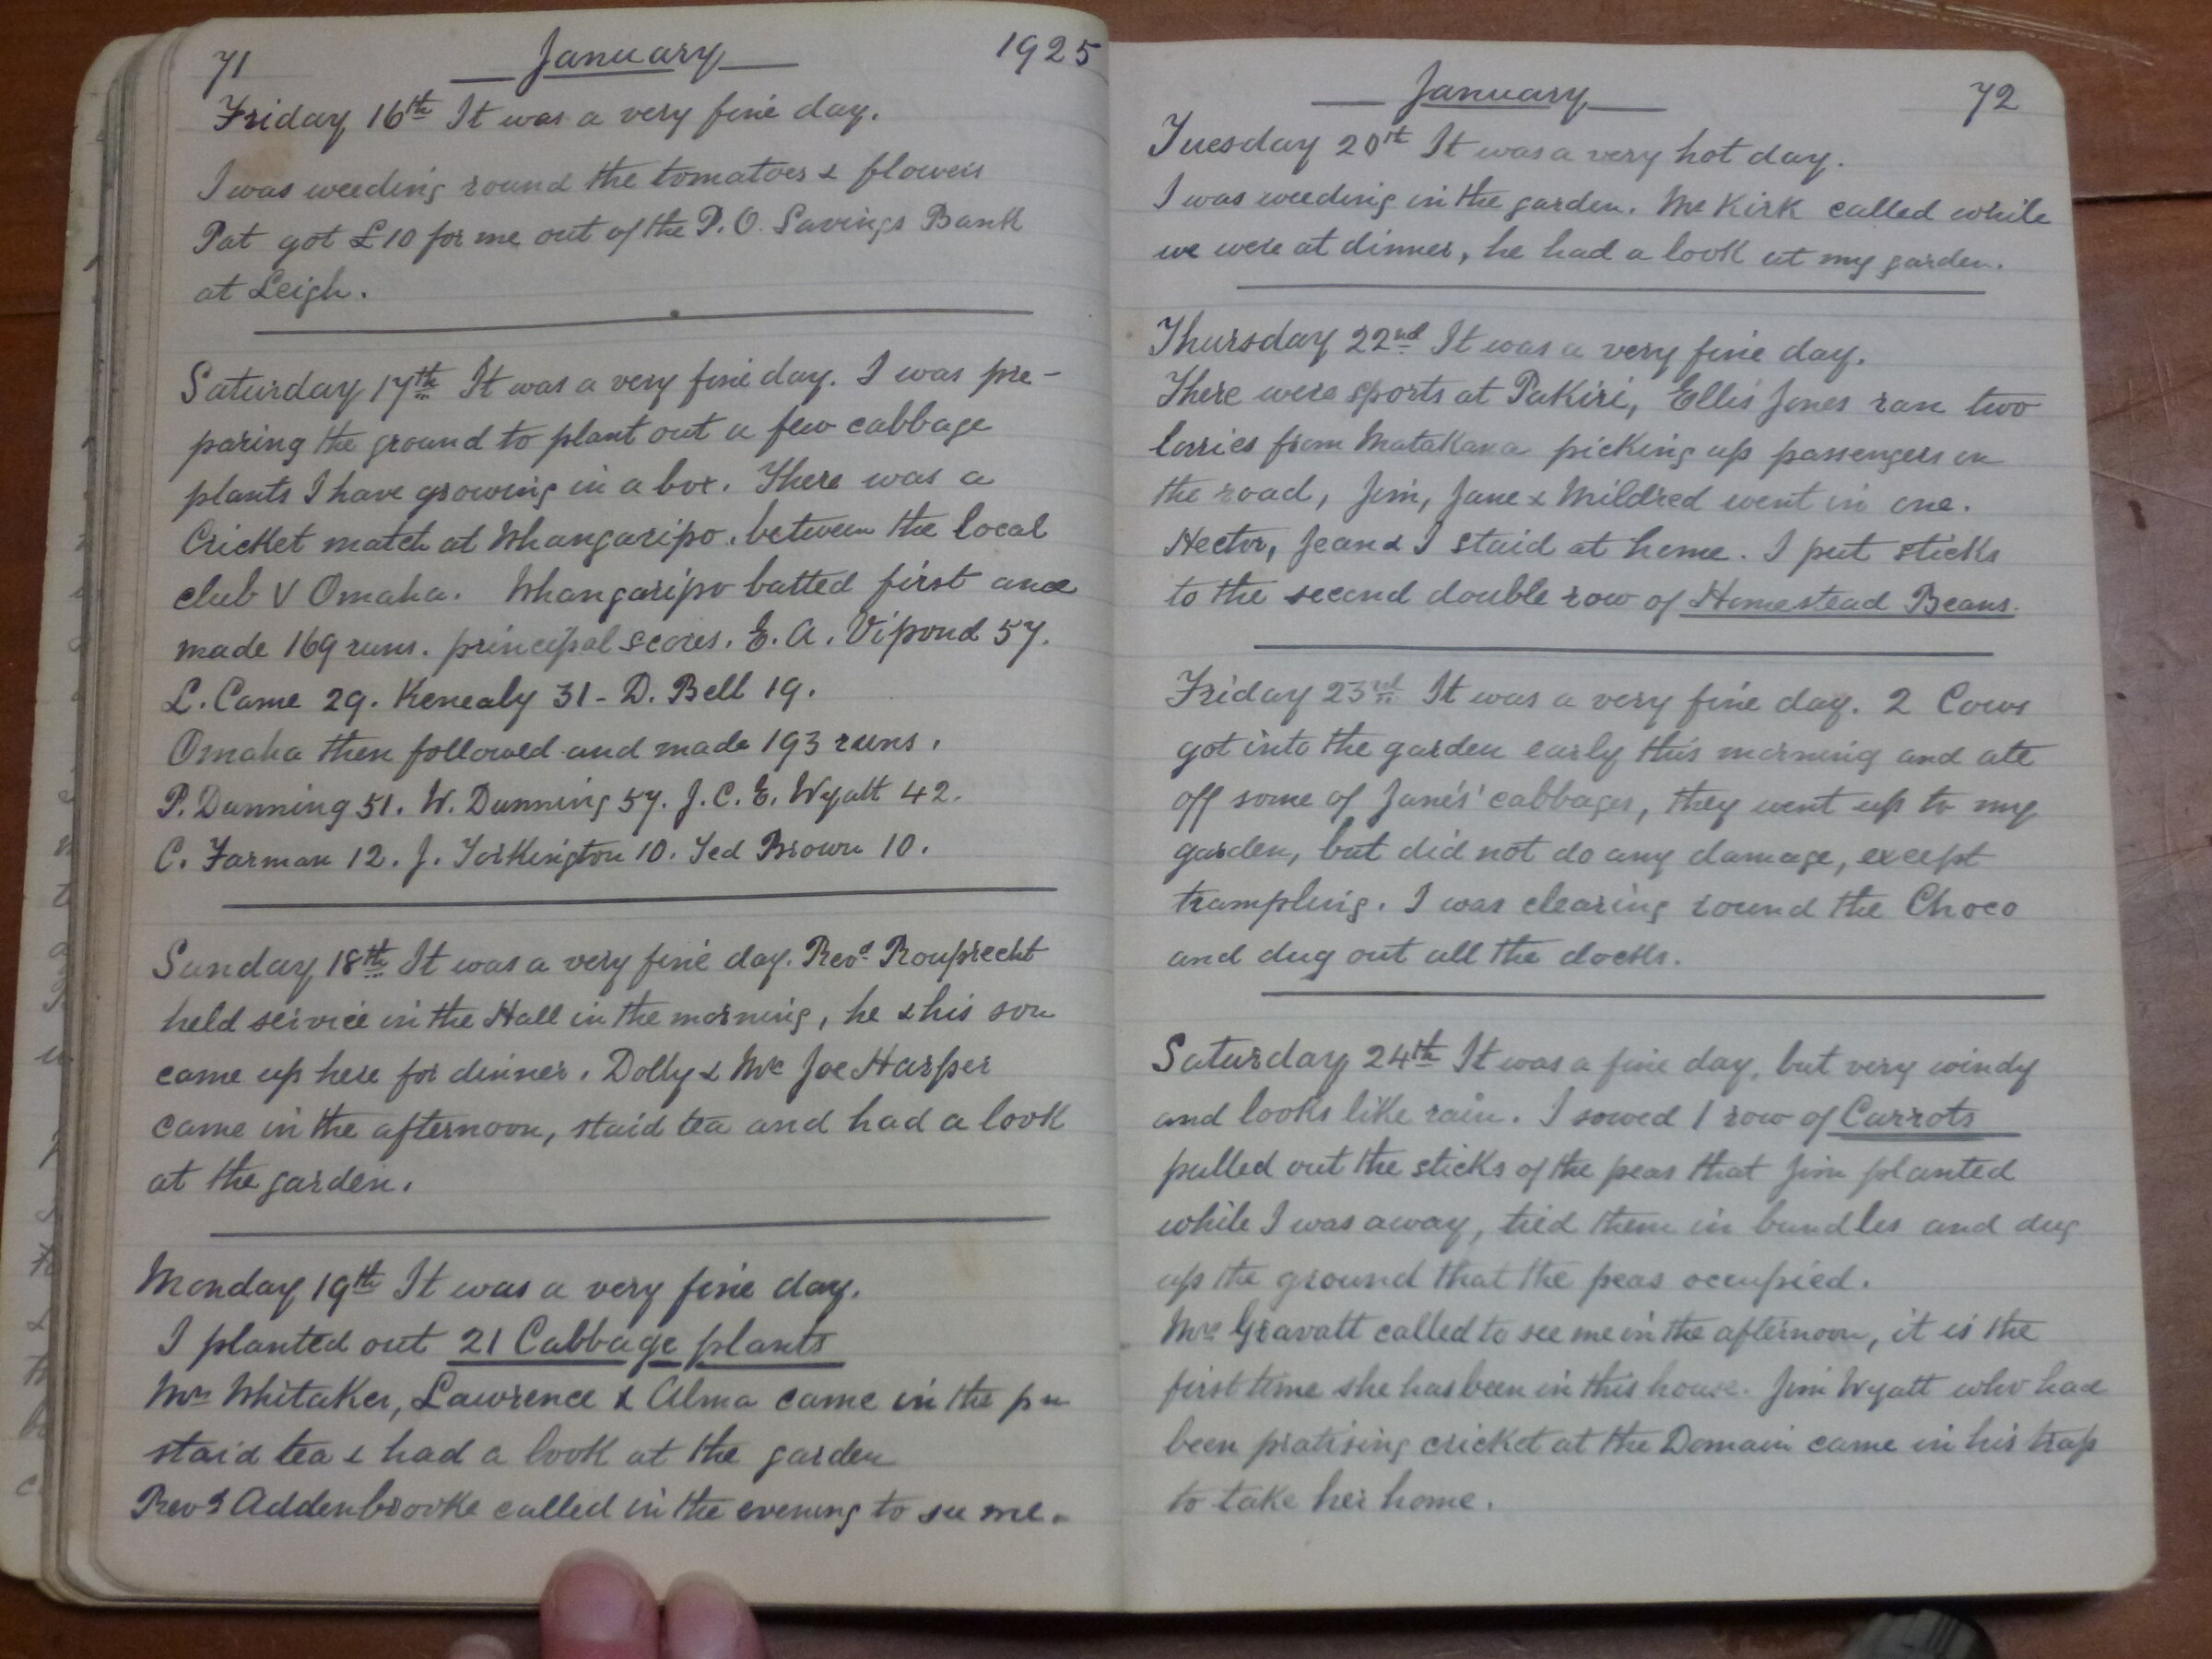 71 January 1925
Friday 16th It was a very fine day.
I was weeding round the tomatoes & flowers
Pat got £10 for me out of the P.O. Savings Bank
at Leigh.
Saturday 17th It was a very fine day. I was pre-
paring the ground to plant out a few cabbage
plants I have growing in a box. There was a
Cricket match at Whangaripo. between the local
club V Omaha. Whangaripo batted first and
made 169 runs. principal scores. E. A. Vipond 57.
L. Came 29. Kenealy 31 - D. Bell 19.
Omaha then followed and made 193 runs.
P. Dunning 51. W. Dunning 57. J. C. E. Wyatt 42.
C. Farman 12. J. Torkington 10. Ted Brown 10.
Sunday 18th It was a very fine day. Revd Rouprecht
held service in the Hall in the morning, he & his son
came up here for dinner. Dolly & Mr Joe Harper
came in the afternoon, staid tea and had a look
at the garden.
Monday 19th It was a very fine day.
I planted out 21 Cabbage plants
Mrs Whitaker, Lawrence & Alma came in the pm
staid tea & had a look at the garden
Revd Addenbrooke called in the evening to see me.
January 72
Tuesday 20th It was a very hot day.
I was weeding in the garden. Mr Kirk called while
we were at dinner, he had a look at my garden.
Thursday 22nd It was a very fine day.
There were sports at Pakiri, Ellis Jones ran two
lorries from Matakana picking up passengers on
the road, Jim, Jane & Mildred went in one.
Hector, Jean & I staid at home. I put sticks
to the second double row of Homestead Beans.
Friday 23rd It was a very fine day. 2 Cows
got into the garden early this morning and ate
off some of Jane's' cabbages, they went up to my
garden, but did not do any damage, except
trampling. I was clearing round the Choco
and dug out all the docks.
Saturday 24th It was a fine day, but very windy
and looks like rain. I sowed 1 row of Carrots
pulled out the sticks of the peas that Jim planted
while I was away, tied them in bundles and dug
up the ground that the peas occupied.
Mrs Gravatt called to see me in the afternoon, it is the
first time she has been in this house. Jim Wyatt who had
been pratising cricket at the Domain came in his trap
to take her home.